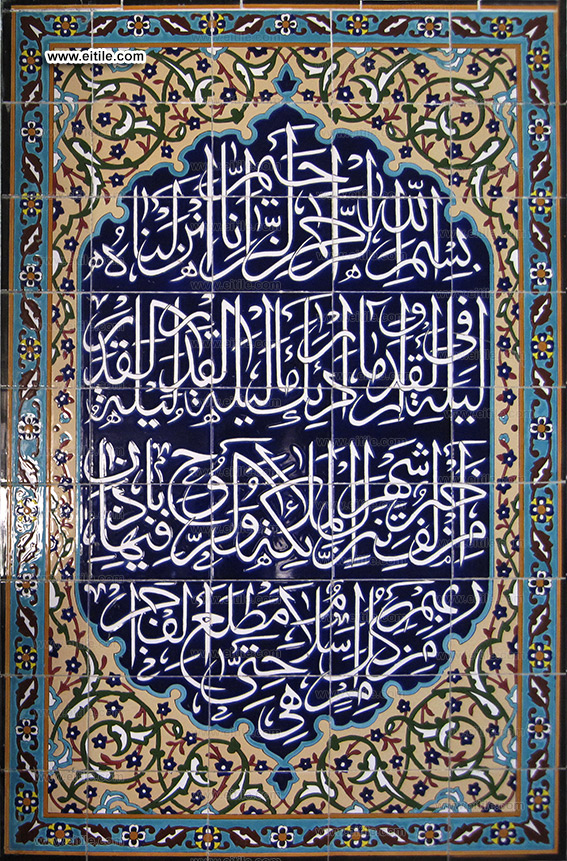 www.eitile.com
بسم الله الرحمن الرحیم انا انزلناه
فی لیلة القدر وما ادریك ما لیلة القدر لیلة القدر
خیر من الف شهر تنزل الملائكة والروح فیها باذن
ربهم من كل امر سلام هی حتی مطلع الفجر